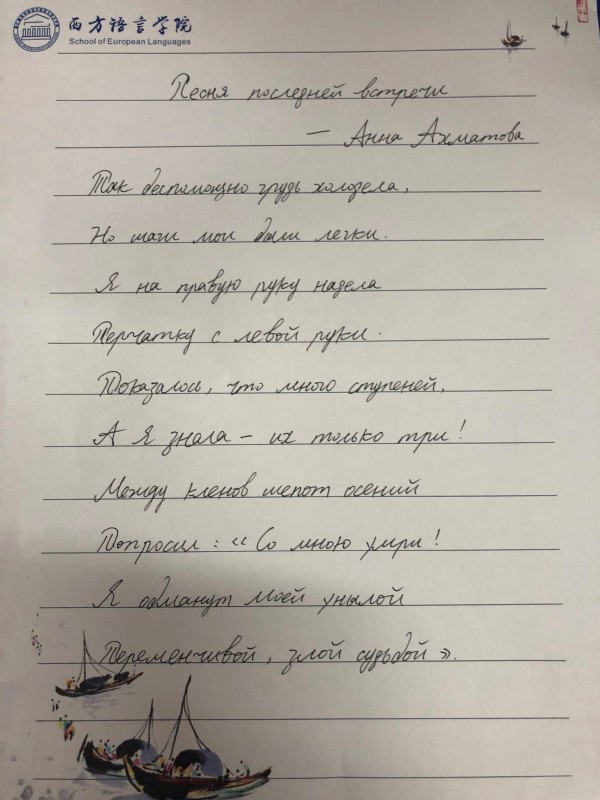 西方语言学院
School of European Languages
Песня последней встречи
— Анна Ахматова
Так беспомощно грудь холодела,
Но шаги мои были легки.
Я на правую руку надела
Перчатку с левой руки.
Показалось, что много ступеней,
А Я знала – их только три!
Между кленов шепот осений
Попросил: «Со мною умри!
Я обманут моей унылой
Переменчивой, злой судьбой».